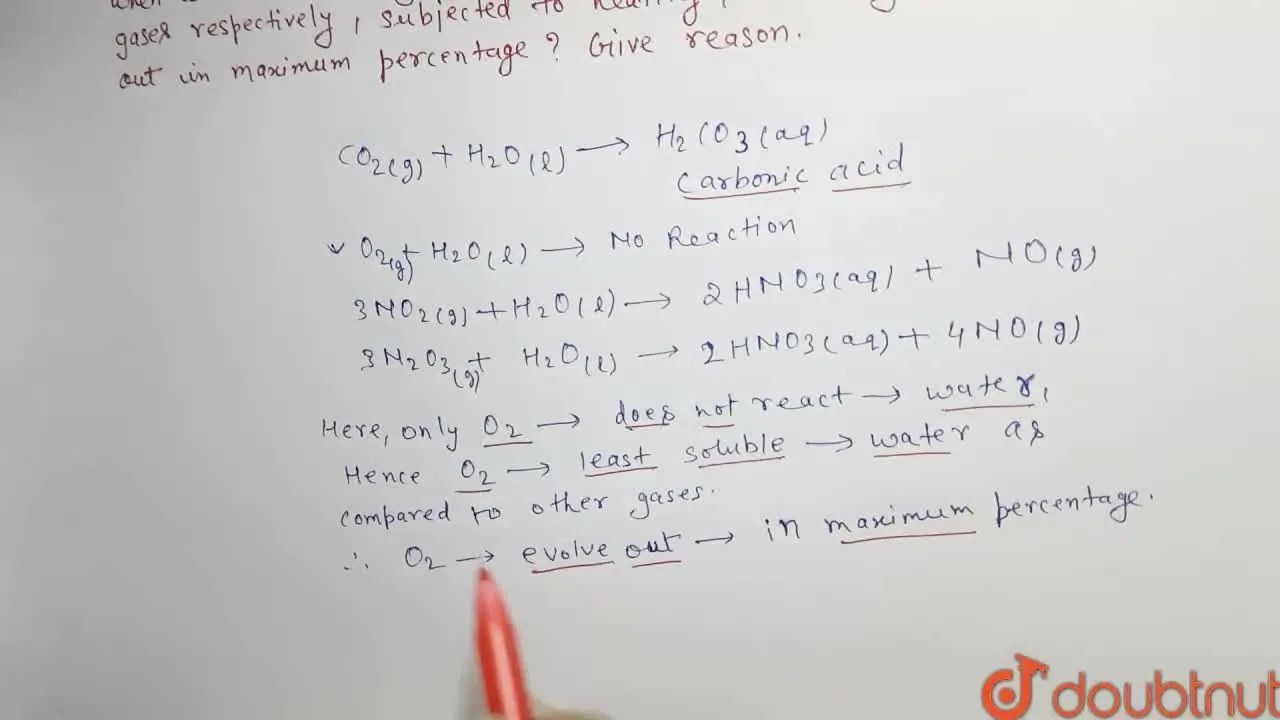 gases respectively, subjected to
out in maximum percentage? Give reason.
CO2(g) + H2O(l) → H2CO3(aq)
Carbonic acid
✓ O2(g) + H2O(l) → No Reaction
3NO2(g) + H2O(l) → 2HNO3(aq) + NO(g)
3N2O3(g) + H2O(l) → 2HNO3(aq) + 4NO(g)
Here, only O2 → does not react → water,
Hence O2 → least soluble → water as
compared to other gases.
∴ O2 → evolve out → in maximum percentage.
doubtnut